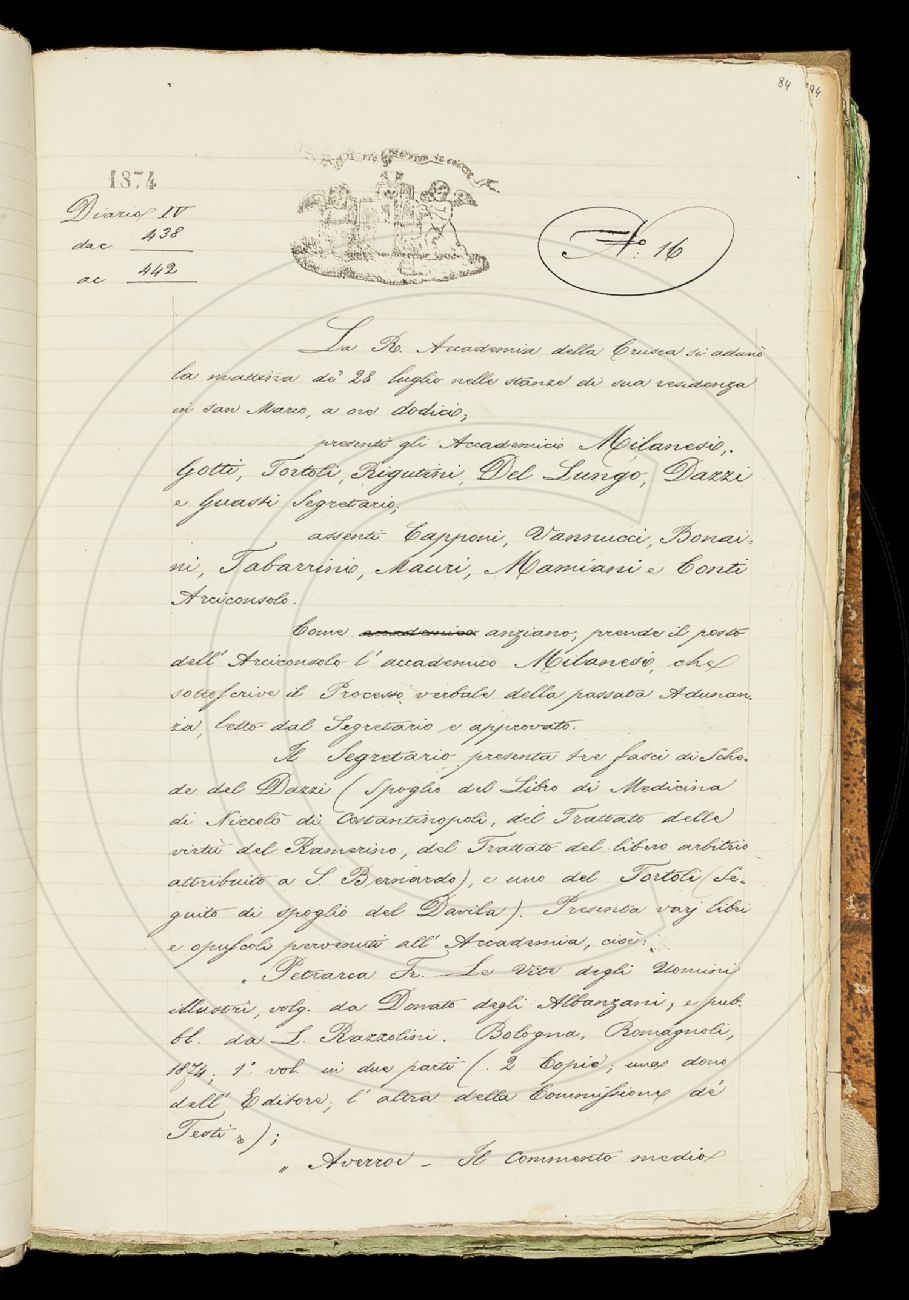 84
94
1874
Diario IV
da c 438
a c 442
N.º 16
La R. Accademia della Crusca si adunò
la mattina de' 28 luglio nelle stanze di sua residenza
in san Marco, a ore dodici;
presenti gli Accademici Milanesi,
Gotti, Tortoli, Rigutini, Del Lungo, Dazzi
e Guasti Segretario;
assenti Capponi, Vannucci, Bonai=
ni, Tabarrini, Mauri, Mamiani e Conti
Arciconsolo.
Come accademico anziano, prende il posto
dell' Arciconsolo l' accademico Milanesi, che
sottoscrive il Processo verbale della passata Adunan-
za, letto dal Segretario e approvato.
Il Segretario presenta tre fasci di Sche-
de del Dazzi (Spoglio del Libro di Medicina
di Niccolò di Costantinopoli, del Trattato delle
virtù del Ramerino, del Trattato del libero arbitrio
attribuito a S. Bernardo), e uno del Tortoli (Se-
guito di spoglio del Davila). Presenta varj libri
e opuscoli pervenuti all' Accademia, cioè:
" Petrarca Fr. – Le Vite degli Uomini
illustri, volg. da Donato degli Albanzani, e pub-
bl. da L. Razzolini. Bologna, Romagnoli,
1874; 1.º vol. in due parti (. 2 Copie; una dono
dell' Editore, l' altra della Commissione de'
Testi „);
„ Averroe – Il Commento medio